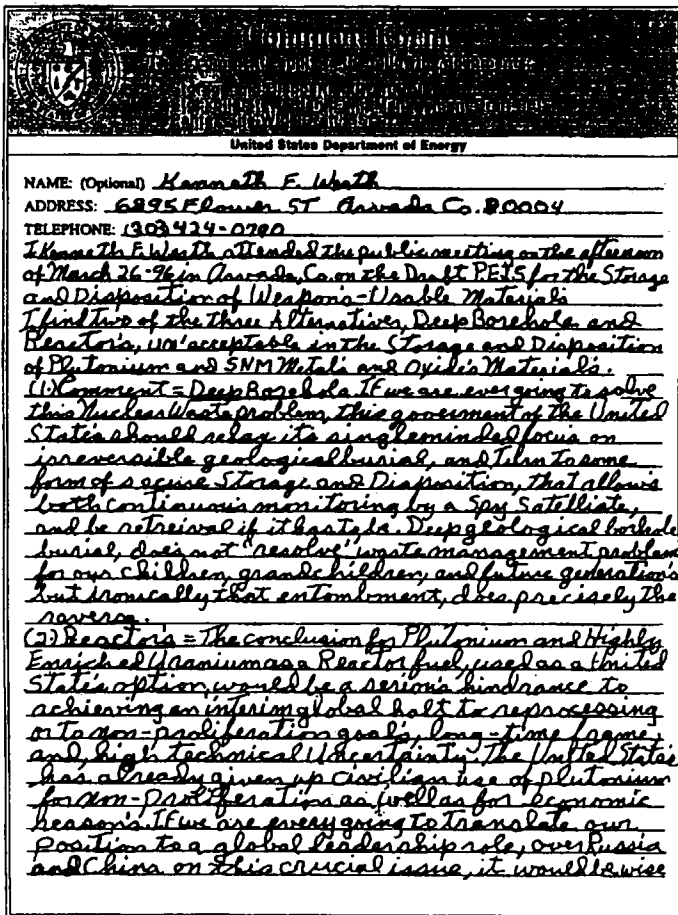 United States Department of Energy
NAME: (Optional) Kenneth F. Werth
ADDRESS: 6895 Flower ST Arvada Co. 80004
TELEPHONE: (303) 424-0780
I Kenneth F. Werth attended the public meeting on the afternoon
of March 26-96 in Arvada, Co. on the Draft PEIS for the Storage
and Disposition of Weapon's-Usable Materials
I find two of the three Alternatives, Deep Borehole and
Reactor's, un'acceptable in the Storage and Disposition
of Plutonium and SNM Metal's and Oxide's Material's.
(1) Comment = Deep Borehole. If we are ever going to solve
this Nuclear Waste problem, this government of the United
State's should relax its singleminded focus on
irreversible geological burial, and turn to some
form of secure Storage and Disposition, that allows
both continuous monitoring by a Spy Satelliate,
and be retreival if it has to be. Deep geological borhole
burial, does not "resolve" waste management problem
for our children, grandchildren, and future generation's
but ironically that entombment, does precisely the
reverse.
(2) Reactor's = The conclusion for Plutonium and Highly
Enriched Uranium as a Reactor fuel, used as a United
State's option, would be a serious hindrance to
achieving an interim global halt to reprocessing
or to non-proliferation goal's, long-time frame,
and, high technical Uncertainty. The United State's
has already given up civilian use of plutonium
for non-proliferation as well as for economic
reason's. If we are every going to translate our
position to a global leadership role, over Russia
and China on this crucial issue, it would be wise